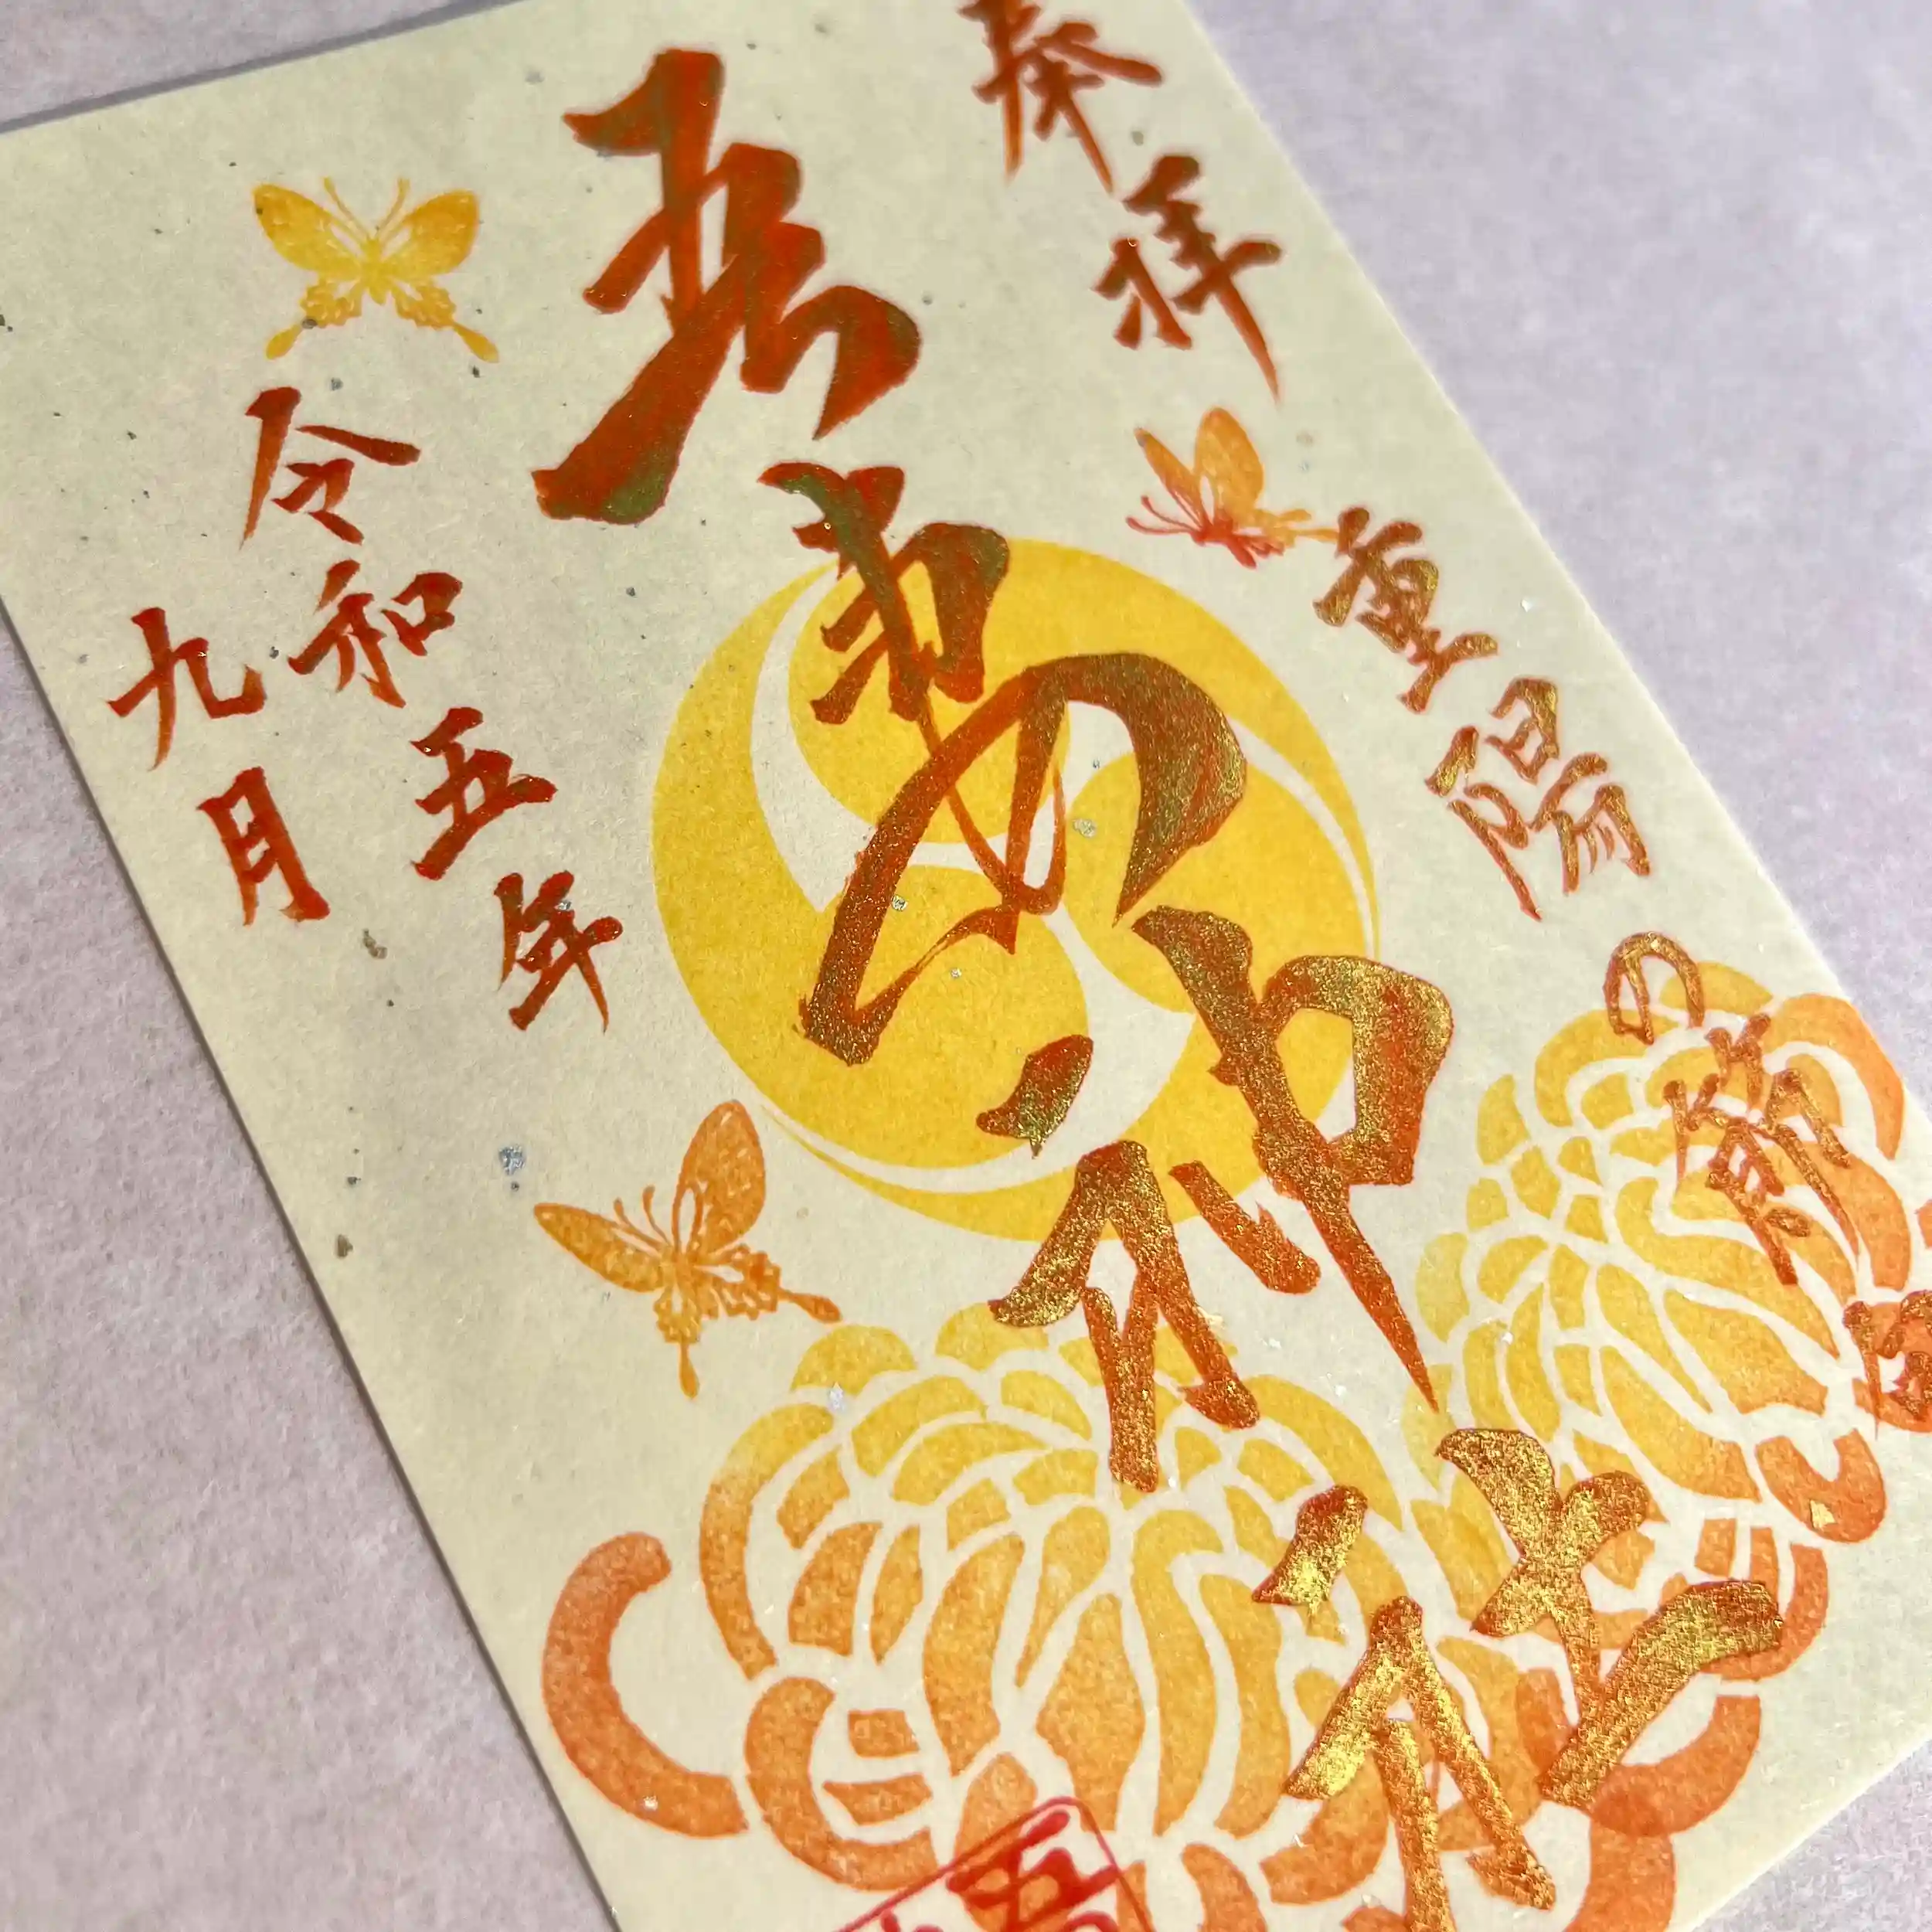 奉拝
重陽の節句
吾妻神社
令和五年
九月